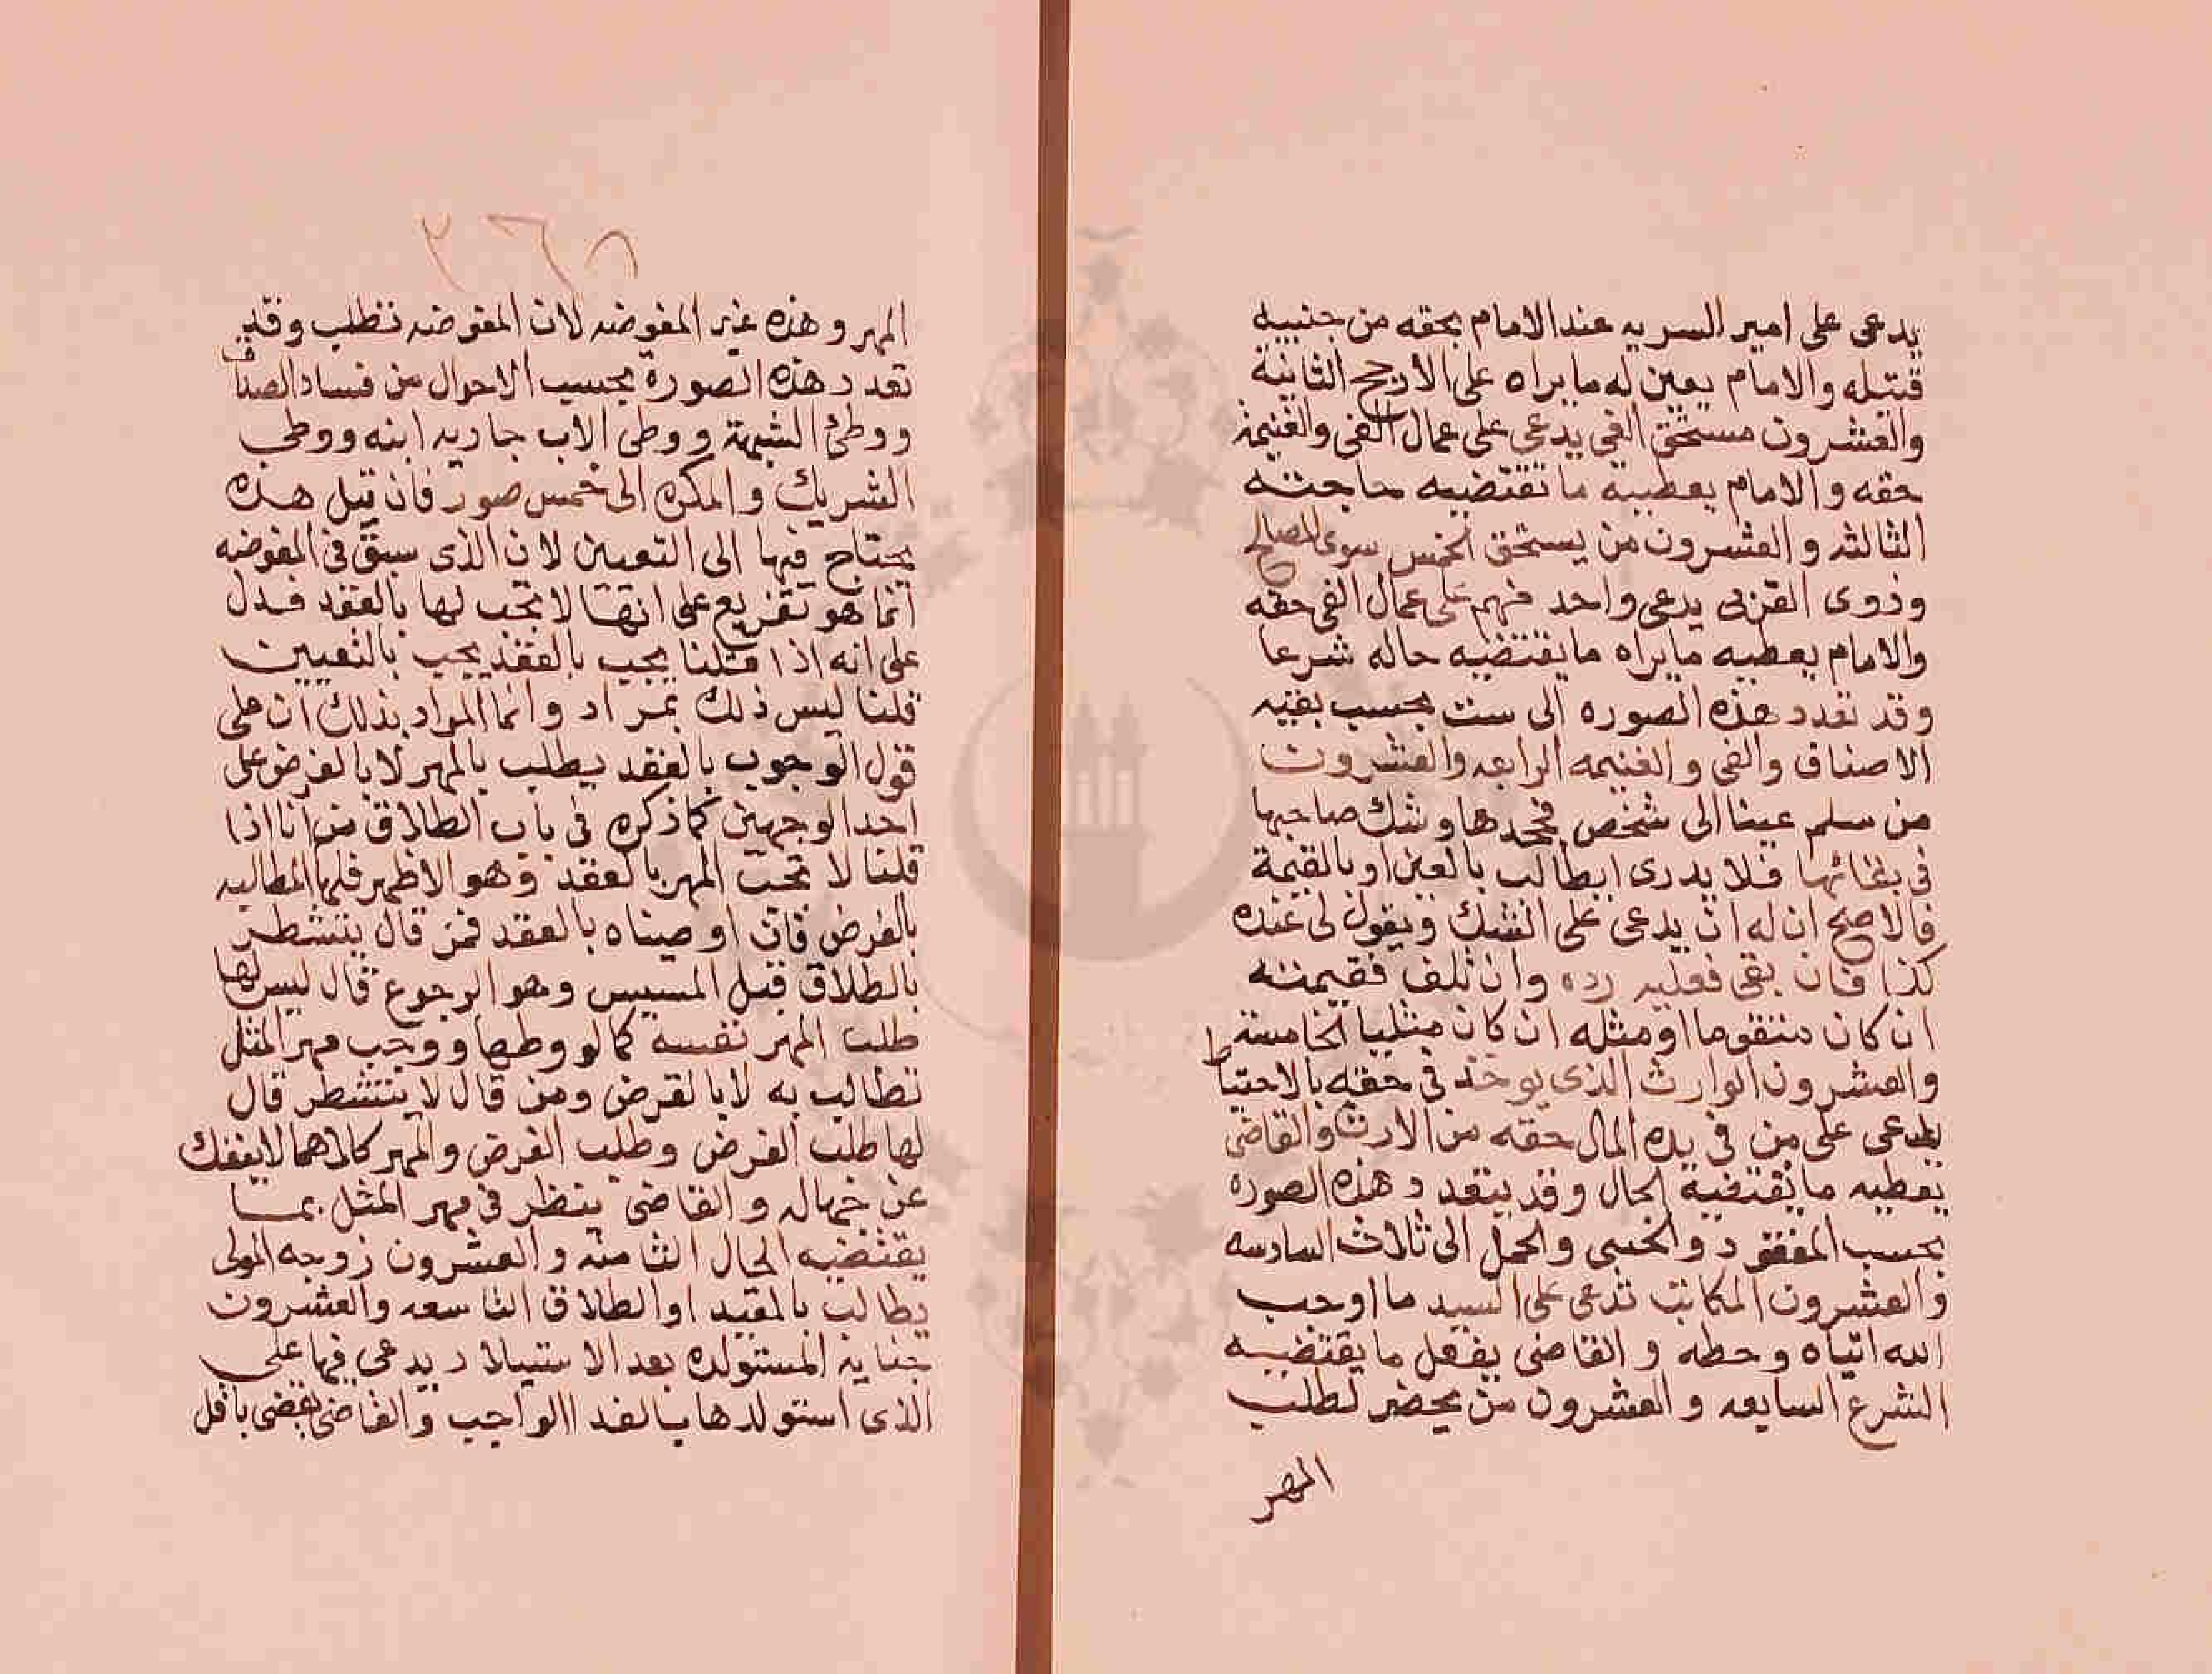 يدعى على امير السريه عند الامام بحقه من جنسيه
قبيله والامام يعين له ما يراه على الارجح الثانية
والعشرون مستحق الفى يدعى على عمال الفى والغنيمة
حقه والامام يعطيه ما تقتضيه حاجته
الثالثه والعشرون من يستحق الخمس سوى المصالح
وذوى القربى يدعى واحد منهم على عمال الفى حقه
والامام يعطيه ما يراه ما يقتضيه حاله شرعا
وقد تعدد هذه الصوره الى ست بحسب بقيه
الاصناف والفى والغنيمه الرابعه والعشرون
من سلم عينا الى شخص فجحدها وشك صاحبها
فى بقائها فلا يدرى ايطالب بالعين او بالقيمة
فالاصح ان له ان يدعى على الشك ويقول لى عنده
كذا فان بقى فعليه رده وان تلف فقيمته
ان كان متقوما او مثله ان كان مثليا الخامسة
والعشرون الوارث الذى يوخذ فى حقه بالاحتياط
يدعى على من فى يده المال حقه من الارث والقاضى
يعطيه ما يقتضية الحال وقد يتعدد هذه الصوره
بحسب المفقود والخنثى والحمل الى ثلاث السادسه
والعشرون المكاتب تدعى على السيد ما اوجب
الله اتياه وحطه والقاضى يفعل ما يقتضيه
الشرع السابعه والعشرون من يحضر لطلب
المهر
٢٦٥
المهر وهذه غير المفوضه لان المفوضه تطلب وقد
تعدد هذه الصورة بحسب الاحوال من فساد الصداق
ووطئ الشبهة ووطى الاب جاريه ابنه ووطى
الشريك والمكره الى خمس صور فان قيل هذه
يحتاج فيها الى التعيين لان الذى سبق فى المفوضه
انما هو تفريع على انها لا تجب لها بالعقد فدل
على انه اذا قلنا يجب بالعقد يجب بالتعيين
قلنا ليس ذلك بمراد وانما المراد بذلك ان على
قول الوجوب بالعقد يطلب بالمهر لا بالفرض على
احد الوجهين كما ذكره فى باب الطلاق من انا اذا
قلنا لا تجب المهر بالعقد وهو الاظهر فلها المطالبه
بالفرض فان اوجبناه بالعقد فمن قال يتشطر
بالطلاق قبل المسيس وهو الرجوع قال ليس لها
طلب المهر نفسه كما لو وطها ووجب مهر المثل
تطالب به لا بالفرض ومن قال لا يتشطر قال
لها طلب الفرض وطلب الفرض والمهر كلاهما لا ينفك
عن جهاله والقاضى ينظر فى مهر المثل بما
يقتضيه الحال الثامنه والعشرون زوجه المولى
يطالب بالفيه او الطلاق التاسعه والعشرون
جنايه المستولده بعد الاستيلاد يدعى فيها على
الذى استولدها بالفدا الواجب والقاضى يقضى باقل